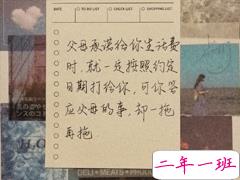 DATE
TO DO LIST
CHECK LIST
SHOPPING LIST
父母承诺给你生活费
时，就一定按照约定
日期打给你，可你答
应父母的事，却一拖
再拖
二年一班
DELI•MEATS•PRODUCE